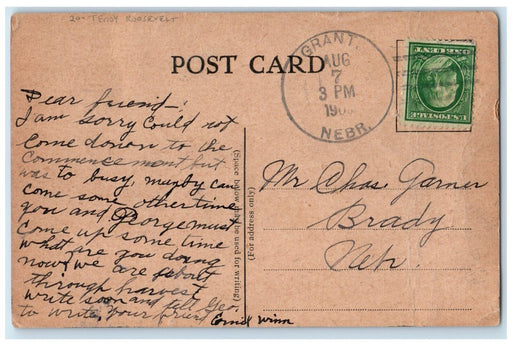 20- TEDDY ROOSEVELT
POST CARD
GRANT.
AUG
7
3 PM
NEBR.
U.S. POSTAGE
Dear friend:
I am sorry could not
come down to the
Commencement but
was to busy, mayby can
come some other time
you and George must
come up some time
what are you doing
now, we are about
through harvest
write soon and tell Geo.
to write, your friend
Winn
(Space below may be used for writing.)
(For address only)
Mr Chas. Garner
Brady
Neb.